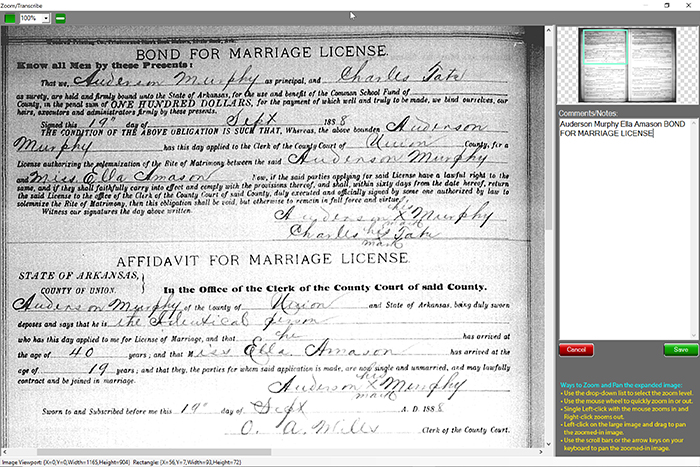 Zoom/Transcribe
100%
BOND FOR MARRIAGE LICENSE.
Know all Men by these Presents:
That we, Anderson Murphy as principal, and Charles Tate
as surety, are held and firmly bound unto the State of Arkansas, for the use and benefit of the Common School Fund of
County, in the penal sum of ONE HUNDRED DOLLARS, for the payment of which well and truly to be made, we bind ourselves, our
heirs, executors and administrators firmly by these presents.
Signed this 19" day of Sept 1888
THE CONDITION OF THE ABOVE OBLIGATION IS SUCH THAT, Whereas, the above bounden Anderson
Murphy has this day applied to the Clerk of the County Court of Union County, for a
License authorizing the solemnization of the Rite of Matrimony between the said Anderson Murphy
and Miss Ella Amason Now, if the said parties applying for said License have a lawful right to the
same, and if they shall faithfully carry into effect and comply with the provisions thereof, and shall, within sixty days from the date hereof, return
the said License to the office of the Clerk of the County Court of said County, duly executed and officially signed by some one authorized by law to
solemnize the Rite of Matrimony, then this obligation shall be void, but otherwise to remain in full force and virtue.
Witness our signatures the day above written
his
Anderson X Murphy
mark
Charles his Tate
mark
AFFIDAVIT FOR MARRIAGE LICENSE.
STATE OF ARKANSAS,
COUNTY OF UNION.
In the Office of the Clerk of the County Court of said County.
Anderson Murphy of the County of Union and State of Arkansas, being duly sworn
deposes and says that he is the Identical person
who has this day applied to me for License of Marriage, and that he has arrived at
the age of 40 years; and that Miss Ella Amason has arrived at the
age of 19 years; and that they, the parties for whom said application is made, are now single and unmarried, and may lawfully
contract and be joined in marriage.
his
Anderson X Murphy
mark
Sworn to and Subscribed before me this 19" day of Sept A. D. 1888
O. A. Mills Clerk of the County Court.
Comments/Notes
Auderson Murphy Ella Amason BOND
FOR MARRIAGE LICENSE
Cancel
Save
Ways to Zoom and Pan the expanded image:
• Use the drop-down list to select the zoom level.
• Use the mouse wheel to quickly zoom in or out.
• Single Left-click with the mouse zooms in and
Right-click zooms out.
• Left-click on the large image and drag to pan
the zoomed-in image.
• Use the scroll bars or the arrow keys on your
keyboard to pan the zoomed-in image.
Image Viewport: {X=0,Y=0,Width=1165,Height=904} Rectangle: {X=56,Y=7,Width=93,Height=72}